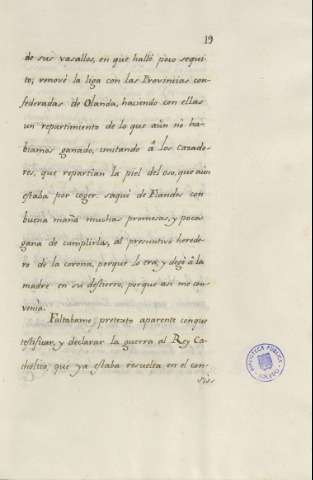 19
de sus vasallos, en que halló poco sequi
to; renové la liga con las Provincias con-
federadas de Olanda, haciendo con ellas
un repartimiento de lo que aún no ha-
biamos ganado, imitando â los cazado-
res, que repartian la piel del oso, que aún
estaba por coger: saqué de Flandes con
buena maña muchas promesas, y poca
gana de cumplirlas, al presuntivo herede-
ro de la corona, porque lo era; y dejé â la
madre en su destierro, porque asi me con-
venia.
Faltabame pretexto aparente con que
testificar, y declarar la guerra al Rey Ca-
tholico, que ya estaba resuelta en el con-
sejo
BIBLIOTECA PUBLICA
TOLEDO